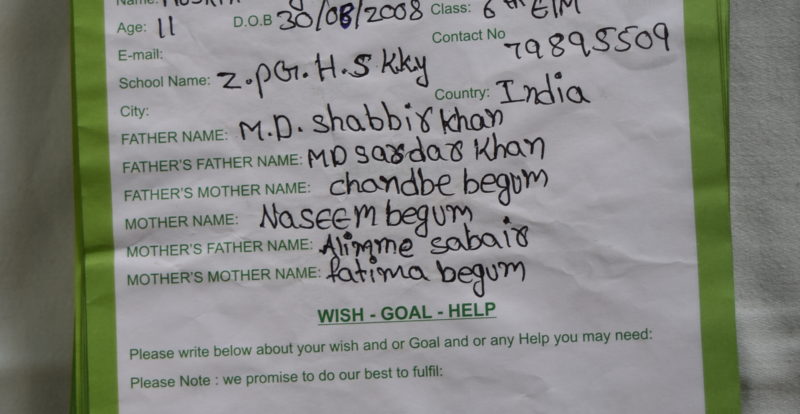 Name:
Age: 11 D.O.B 30/06/2008 Class: 6th E/M
Contact No 79895509
E-mail:
School Name: Z.PG.H.S.KKy
City: Country: India
FATHER NAME: M.D. shabbir khan
FATHER'S FATHER NAME: MD sardar Khan
FATHER'S MOTHER NAME: chandbe begum
MOTHER NAME: NaSEEm begum
MOTHER'S FATHER NAME: Alimme sabair
MOTHER'S MOTHER NAME: fatima begum
WISH - GOAL - HELP
Please write below about your wish and or Goal and or any Help you may need:
Please Note : we promise to do our best to fulfil: